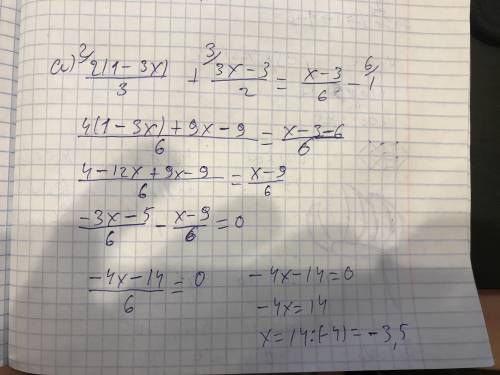 а) ²⁄ 2(1-3x)/3 + ³⁄ 3x-3/2 = x-3/6 - ⁶⁄ 1
4(1-3x)+9x-9/6 = x-3-6/6
4-12x+9x-9/6 = x-9/6
-3x-5/6 - x-9/6 = 0
-4x-14/6 = 0
-4x-14=0
-4x=14
x=14:(-4)=-3,5